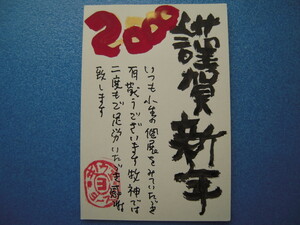 謹賀新年
2000
いつも小生の個展をみていただき
有難うございます牧神では
二度もご足労いただき感謝
致します